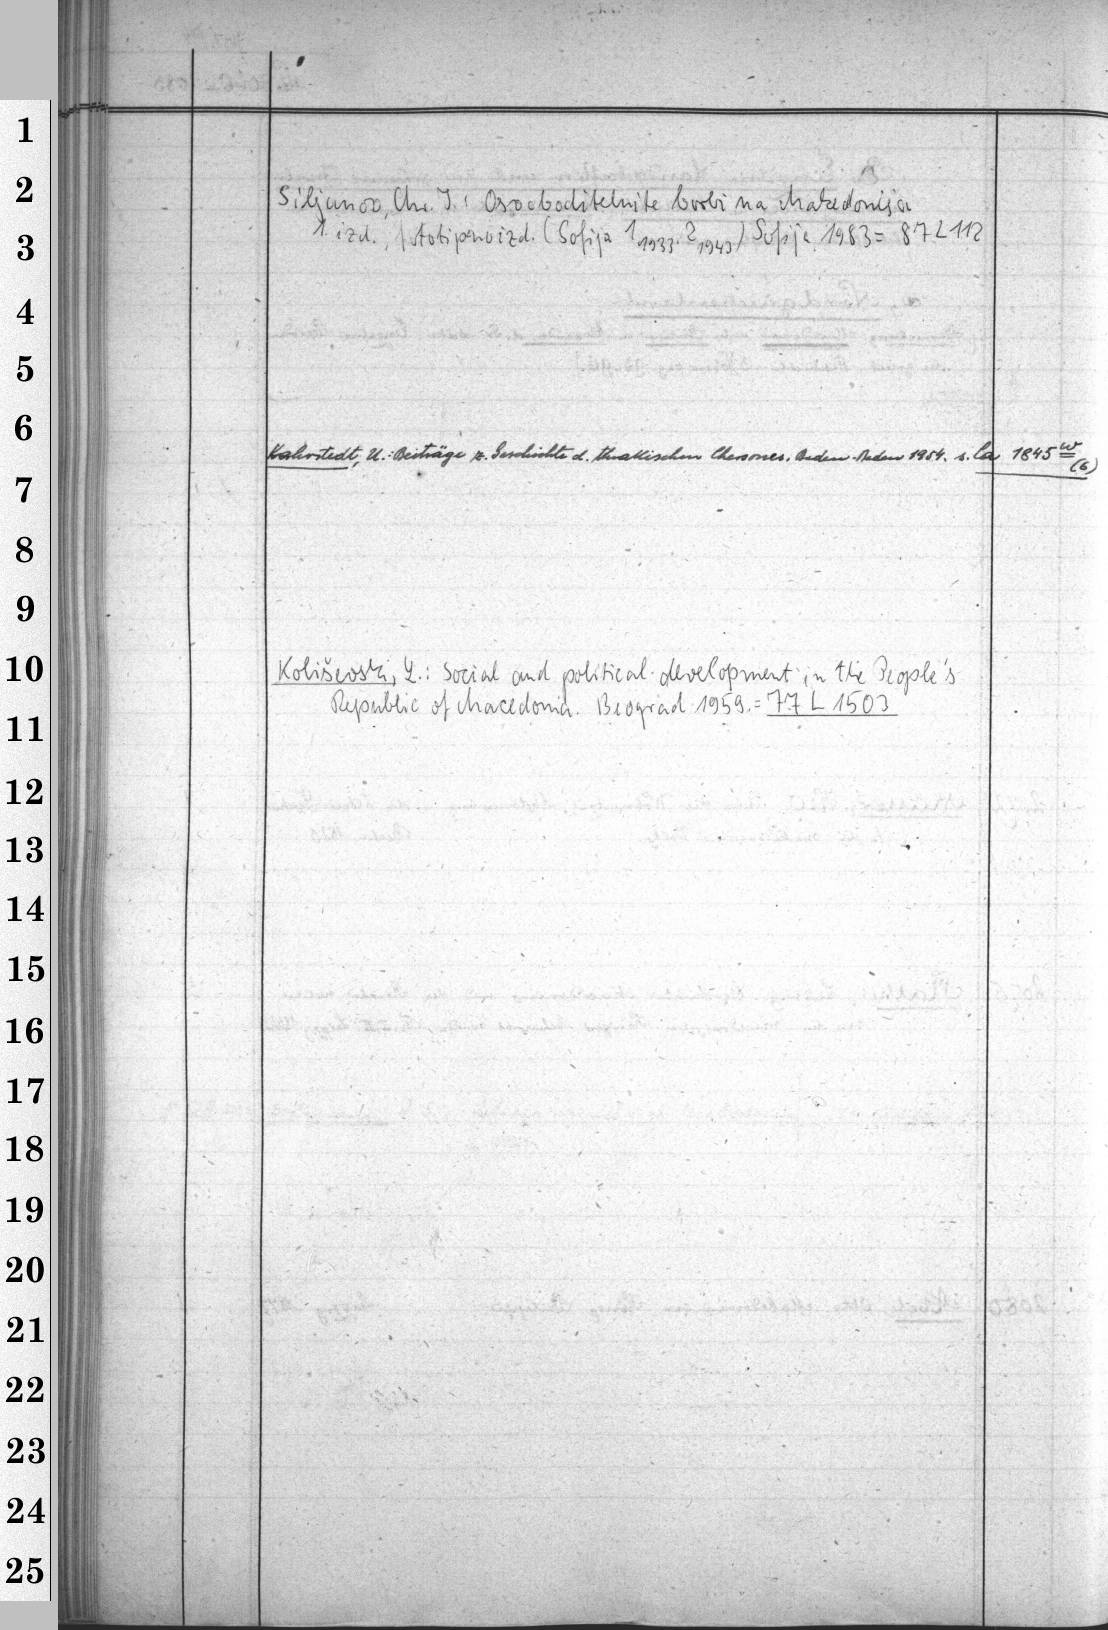 1
2
Siljanov, Chr. I.: Osvoboditelnite borbi na Makedonija
3
1. izd., fototipno izd. (Sofija 1 1933. 2 1943) Sofija 1983 = 87 L 112
4
5
6
Kahrstedt, U.: Beiträge z. Geschichte d. thrakischen Chersones. Baden-Baden 1954. s. La 1845 w (6)
7
8
9
10
Koliševski, L.: Social and political development in the People's
Republic of Macedonia. Beograd 1959. = 77 L 1503
11
12
13
14
15
16
17
18
19
20
21
22
23
24
25